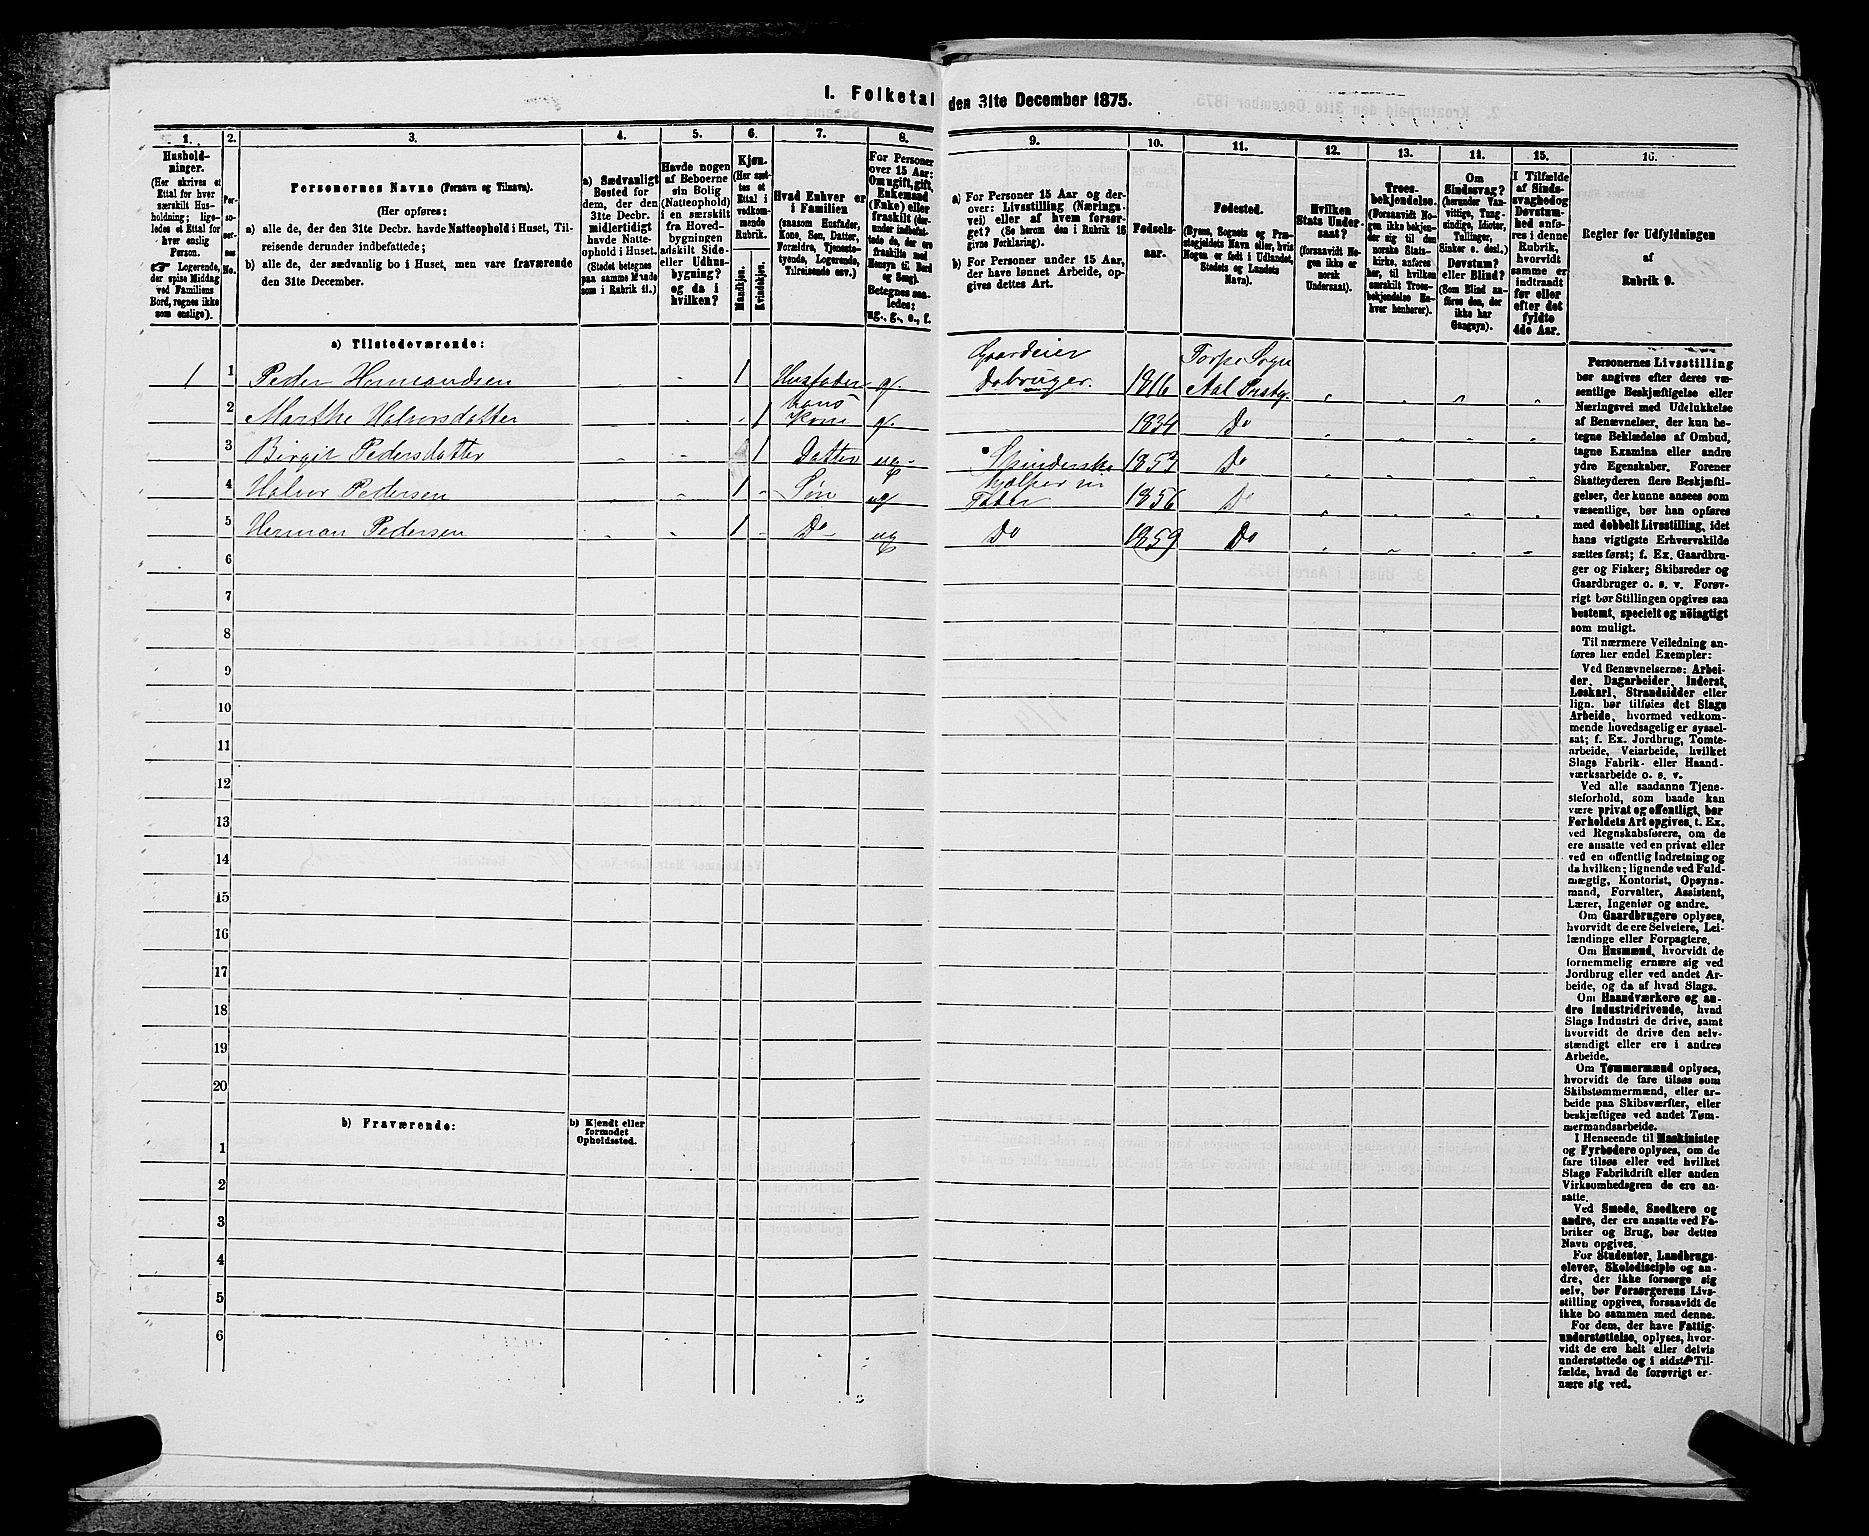 1. Folketal den 31te December 1875.
1. 2. 3. 4. 5. 6. 7. 8. 9. 10. 11. 12. 13. 14. 15. 16.
Hushold-
ninger.
(Her skrives et
Ettal for hver
særskilt Hus-
holdning; lige-
ledes et Ettal
for hver
enslig
Person.
☞ Logerende,
der spise Middag
ved Familiens
Bord, regnes ikke
som enslige).
Per-
so-
ner-
nes
No.
Personernes Navne (Fornavn og Tilnavn).
(Her opføres:
a) alle de, der den 31te Decbr. havde Natteophold i Huset, Til-
reisende derunder indbefattede;
b) alle de, der sædvanlig bo i Huset, men vare fraværende
den 31te December.
a) Sædvanligt
Bosted for
dem, der den
31te Decbr.
midlertidigt
havde Natte-
ophold i Huset.
(Stedet betegnes
paa samme Maade
som i Rubrik 11.)
Havde nogen
af Beboerne
sin Bolig
(Natteophold)
i en særskilt
fra Hoved-
bygningen
adskilt Side-
eller Udhus-
bygning?
og da i
hvilken?
Kjøn.
(Her sæt-
tes et
Ettal i
vedkom-
mende
Rubrik.
Mandkjøn.
Kvindekjøn.
Hvad Enhver er
i Familien
(saasom Husfader,
Kone, Søn, Datter,
Forældre, Tjeneste-
tyende, Logerende,
Tilreisende osv.)
For Personer
over 15 Aar:
Om ugift, gift,
Enkemand
(Enke) eller
fraskilt (der-
under indbefat-
tede de, der ere
fraskilte med
Hensyn til Bord
og Seng).
Betegnes saa-
ledes:
ug., g., e., f.
a) For Personer 15 Aar og der-
over: Livsstilling (Nærings-
vei) eller af hvem forsør-
get? (Se herom den i Rubrik 16
givne Forklaring).
b) For Personer under 15 Aar,
der have lønnet Arbeide, op-
gives dettes Art.
Fødsels-
aar.
Fødested.
(Byens, Sognets og Præ-
stegjeldets Navn eller, hvis
Nogen er født i Udlandet,
Stedets og Landets
Navn).
Hvilken
Stats Under-
saat?
(forsaavidt No-
gen ikke er
norsk
Undersaat).
Troes-
bekjendelse.
(Forsaavidt No-
gen ikke bekjen-
der sig til den
norske Stats-
kirke, anføres
her, til hvilken
særskilt Troes-
bekjendelse En-
hver henhører).
Om
Sindssvag?
(herunder Van-
vittige, Tung-
sindige, Idioter,
Tullinger,
Sinker o. desl.).
Døvstum?
eller Blind?
(Som Blind an-
føres den, der
ikke har
Gangsyn).
I Tilfælde
af Sinds-
svaghed og
Døvstum-
hed anfø-
res i denne
Rubrik,
hvorvidt
samme er
indtraadt
før eller
efter det
fyldte
4de Aar.
Regler for Udfyldningen
af
Rubrik 9.
a) Tilstedeværende:
1 1 Peder Hermandsen 1 Husfader g. Gaardeier
Do bruger. 1816 Torpe Sogn
Aal Prstg.
2 Marthe Halvorsdatter 1 hans
Kone g. 1834 Do
3 Birgit Pedersdatter 1 Datter ug 185 Do
4 Halvor Pedersen 1 Søn ug hjælper sin
Fader 1856 Do
5 Herman Pedersen 1 Do ug Do 1859 Do
6
7
8
9
10
11
12
13
14
15
16
17
18
19
20
b) Fraværende:
b) Kjendt eller
formodet
Opholdssted.
1
2
3
4
5
6
Personernes Livsstilling
bør angives efter deres væ-
sentlige Beskjæftigelse eller
Næringsvei med Udelukkelse
af Benævnelser, der kun be-
tegne Beklædelse af Ombud,
tagne Examina eller andre
ydre Egenskaber. Forener
Skatteyderen flere Beskjæfti-
gelser, der kunne ansees som
væsentlige, bør han opføres
med dobbelt Livsstilling, idet
hans vigtigste Erhvervskilde
sættes først; f. Ex. Gaardbru-
ger og Fisker; Skibsreder og
Gaardbruger o. s. v. Forøv-
rigt bør Stillingen opgives saa
bestemt, specielt og nøiagtigt
som muligt.
Til nærmere Veiledning an-
føres her endel Exempler:
Ved Benævnelserne: Arbei-
der, Dagarbeider, Inderst,
Løskarl, Strandsidder eller
lign. bør tilføies det Slags
Arbeide, hvormed vedkom-
mende hovedsagelig er syssel-
sat; f. Ex. Jordbrug, Tomte-
arbeide, Veiarbeide, hvilket
Slags Fabrik- eller Haand-
værksarbeide o. s. v.
Ved alle saadanne Tjene-
steforhold, som baade kan
være privat og offentligt, bør
Forholdets Art opgives, t. Ex.
ved Regnskabsførere, om de
ere ansatte ved en privat eller
ved en offentlig Indretning og
da hvilken; lignende ved Fuld-
mægtig, Kontorist, Opsyns-
mand, Forvalter, Assistent,
Lærer, Ingeniør og andre.
Om Gaardbrugere oplyses,
hvorvidt de ere Selveiere, Lei-
lændinge eller Forpagtere.
Om Husmænd, hvorvidt de
fornemmelig ernære sig ved
Jordbrug eller ved andet Ar-
beide, og da af hvad Slags.
Om Haandværkere og an-
dre Industridrivende, hvad
Slags Industri de drive, samt
hvorvidt de drive den selv-
stændigt eller ere i andres
Arbeide.
Om Tømmermænd oplyses,
hvorvidt de fare tilsøs som
Skibstømmermænd, eller ar-
beide paa Skibsværfter, eller
beskjæftiges ved andet Tøm-
mermandsarbeide.
I Henseende til Maskinister
og Fyrbødere oplyses, om de
fare tilsøs eller ved hvilket
Slags Fabrikdrift eller anden
Virksomhedsgren de ere an-
satte.
Ved Smede, Snedkere og
andre, der ere ansatte ved Fa-
briker og Brug, bør dettes
Navn opgives.
For Studenter, Landbrugs-
elever, Skoledisciple og an-
dre, der ikke forsørge sig
selv, bør Forsørgerens Livs-
stilling opgives, forsaavidt de
ikke bo sammen med denne.
For dem, der have Fattig-
understøttelse, oplyses, hvor-
vidt de ere helt eller delvis
understøttede og i sidste Til-
fælde, hvad de forøvrigt er-
nære sig ved.